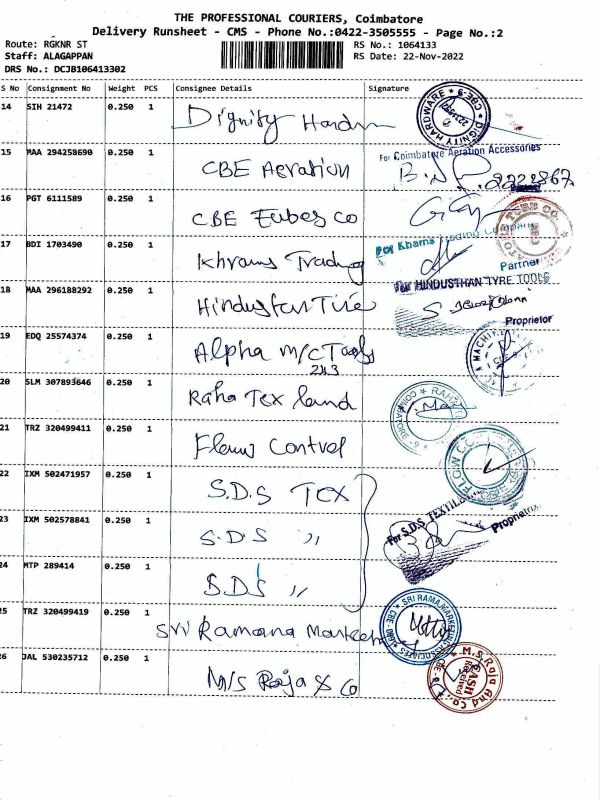 THE PROFESSIONAL COURIERS, Coimbatore
Delivery Runsheet - CMS - Phone No.:0422-3505555 - Page No.:2
Route: RGKNR ST
RS No.: 1064133
Staff: ALAGAPPAN
RS Date: 22-Nov-2022
DRS No.: DCJB106413302
S No Consignment No Weight PCS Consignee Details Signature
14 SIH 21472 0.250 1 Dignity Hardw
DIGNITY HARDWARE CBE-9
15 MAA 294258690 0.250 1 CBE Aeration
For Coimbatore Aeration Accessories
16 PGT 6111589 0.250 1 CBE Tubes Co
17 BDI 1703490 0.250 1 Khrams Trading
For Khams Trading Company
Partner
18 MAA 296188292 0.250 1 Hindustan Tire
For HINDUSTHAN TYRE TOOLS
Proprietor
19 EDQ 25574374 0.250 1 Alpha M/C Tools
243
20 SLM 307893646 0.250 1 Raha Tex land
21 TRZ 320499411 0.250 1 Flow Control
FLOW CO
22 IXM 502471957 0.250 1 S.D.S TEX
For S.D.S TEXTILE
Proprietrix
23 IXM 502578841 0.250 1 S.D.S "
24 MTP 289414 0.250 1 S.D.S "
25 TRZ 320499419 0.250 1 Sri Ramana Marketing
26 JAL 530235712 0.250 1 M/S Raja & Co
M.S. Raja And Co.,
CASH
Received